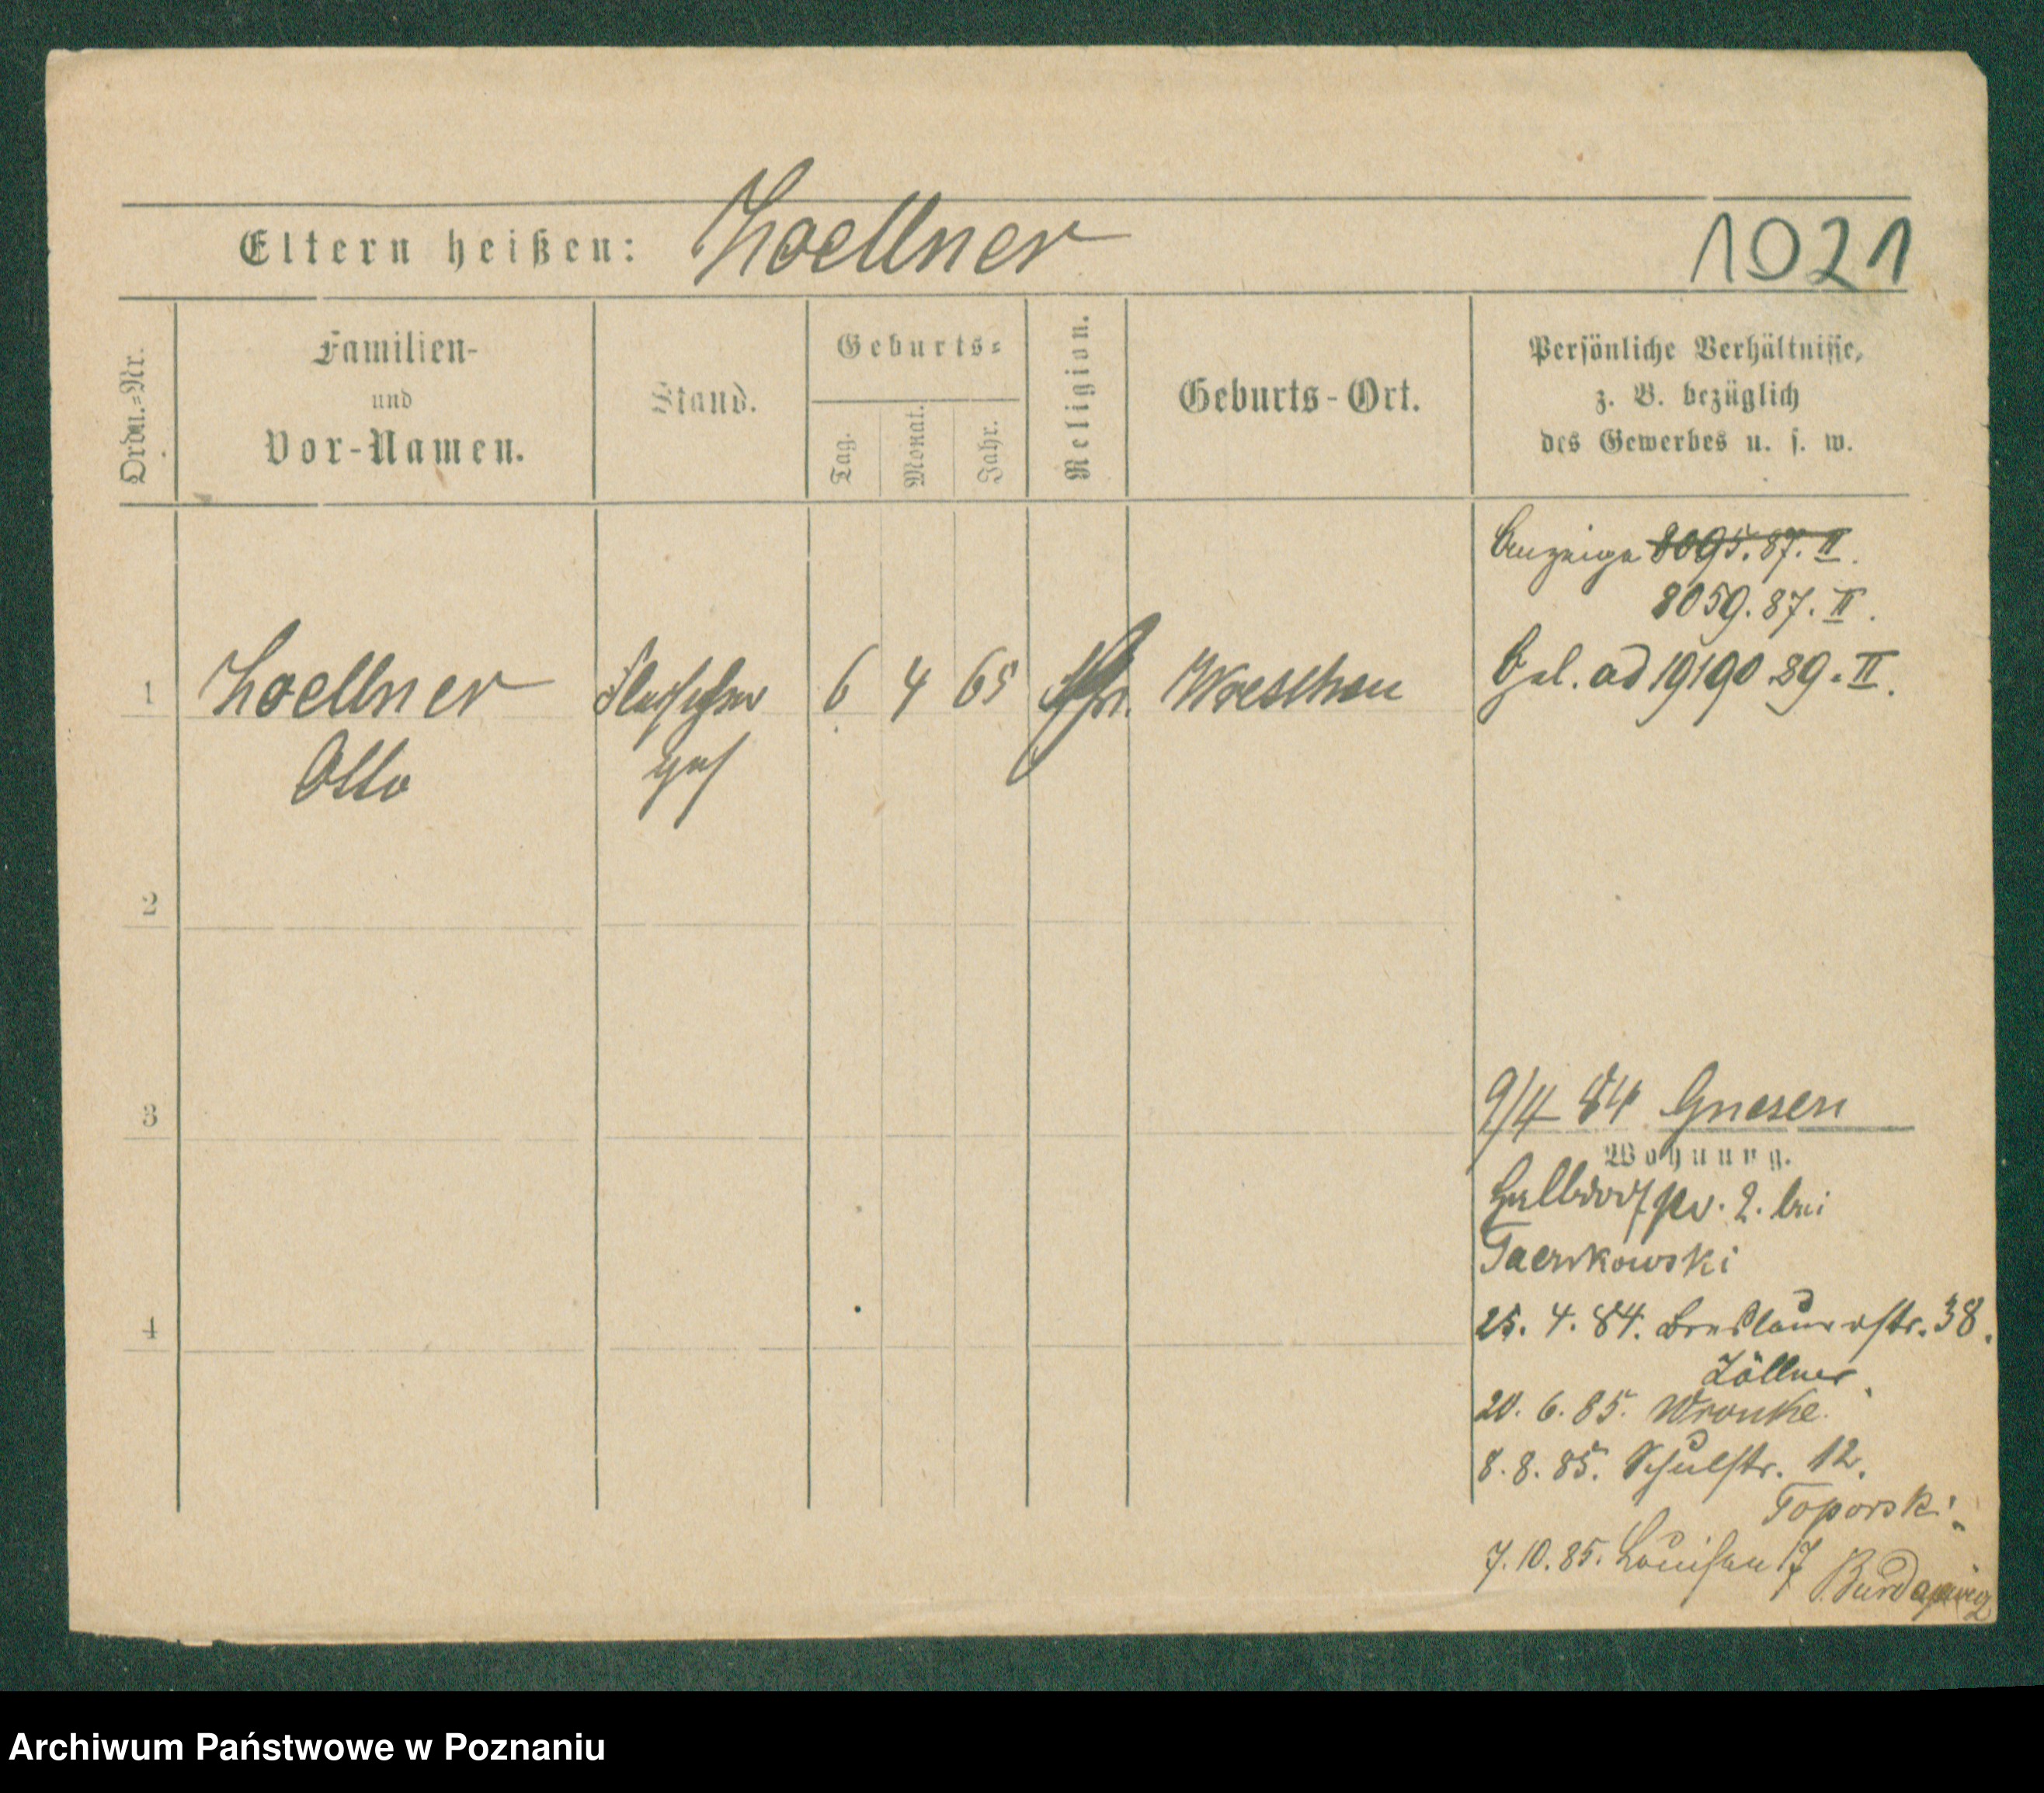 Eltern heißen: Zoellner 1021
Ordn.-Nr.
Familien-
und
Vor-Namen.
Stand.
Geburts-
Tag.
Monat.
Jahr.
Religion.
Geburts-Ort.
Persönliche Verhältnisse,
z. B. bezüglich
des Gewerbes u. s. w.
Anzeige 8095.87.II.
8059.87.II.
1 Zoellner 6 4 65 Wreschen ad 19190.89.II.
Otto
2
3
9/4 84 Gnesen
Wohnung.
Halbdorfstr. 2. bei
4
25. 4. 84. Breslauerstr. 38.
Zöllner.
20. 6. 85. Wronke.
8. 8. 85. Schulstr. 12.
Toporski.
7. 10. 85. Louisen 17
Archiwum Państwowe w Poznaniu